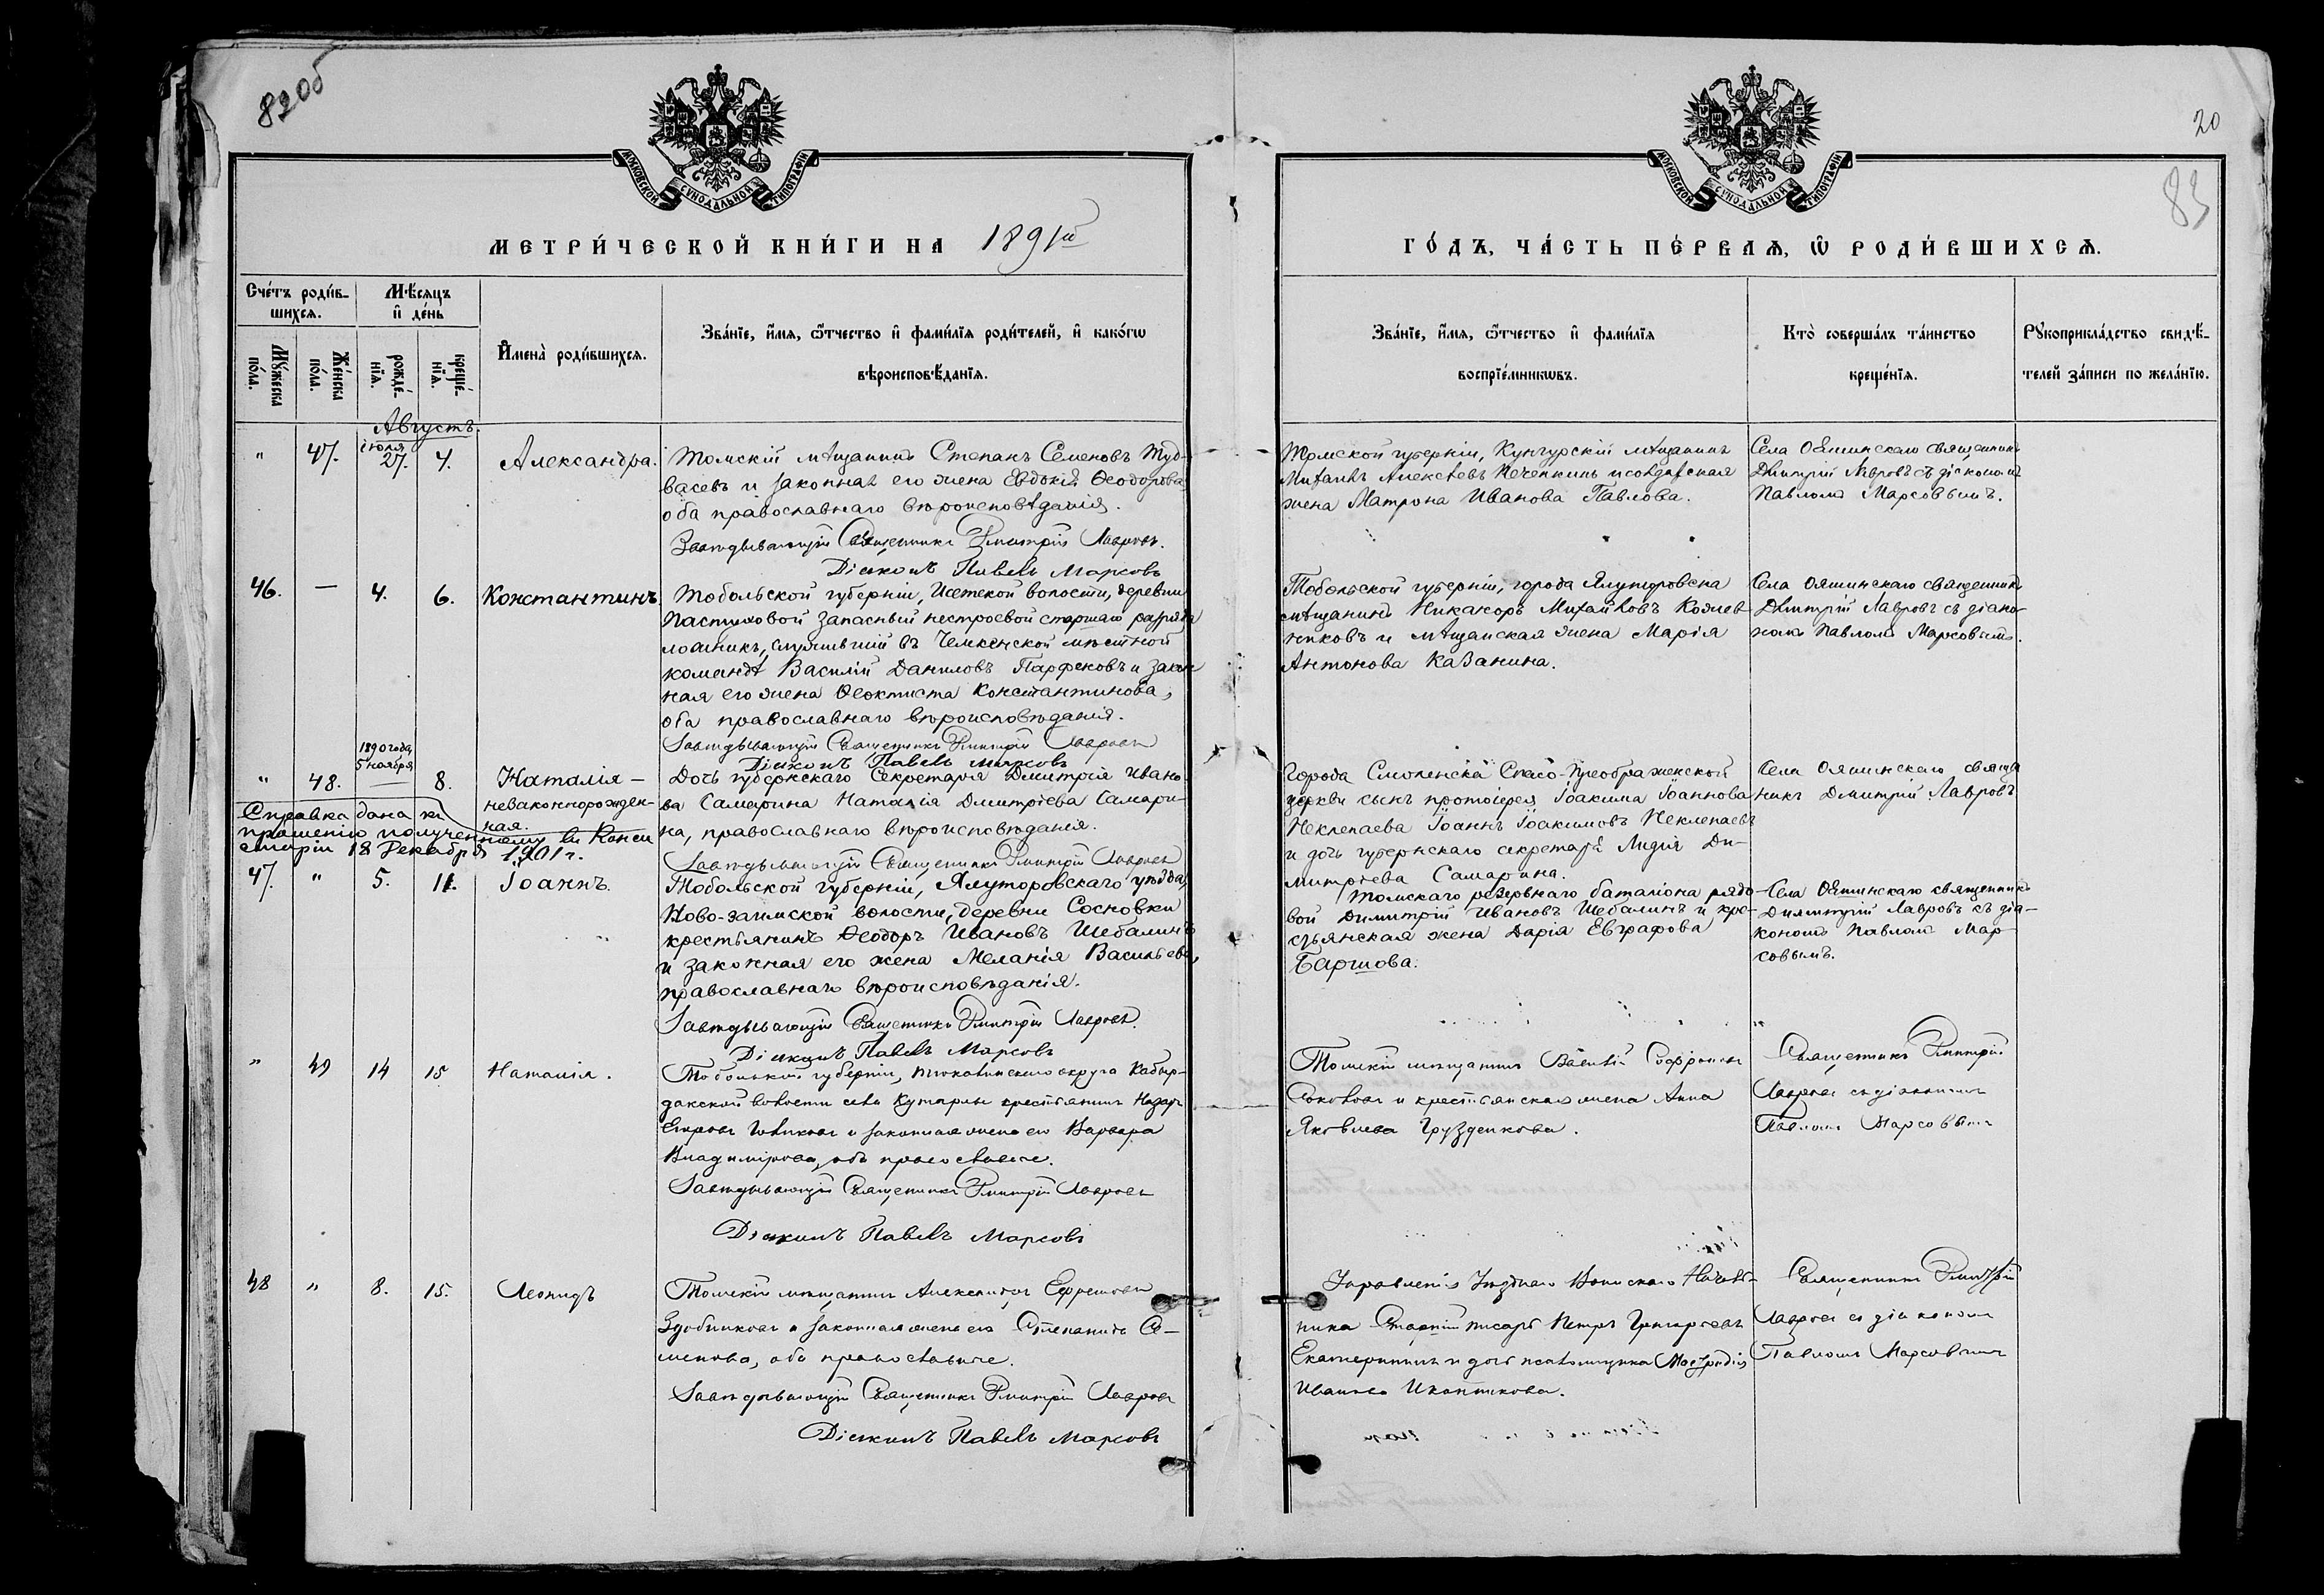 82об
20
83
МОСКОВСКОЙ СѴНОДАЛЬНОЙ ТИПОГРАФІИ
МОСКОВСКОЙ СѴНОДАЛЬНОЙ ТИПОГРАФІИ
МЕТРИ́ЧЕСКОЙ КНИ́ГИ НА 1891й
ГО́ДЪ, ЧА́СТЬ ПЕ́РВАЯ, Ѡ҆ РОДИ́ВШИХСЯ.
Сче́тъ роди́в-
шихся.
Мѣ́сяцъ
и҆ де́нь
Мꙋ́жеска
по́ла.
Же́нска
по́ла.
рожде́-
нїя.
креще́-
нїя.
И҆мена̀ роди́вшихся.
Зва́нїе, и҆́мя, ѻ҆́тчество и҆ фами́лїя роди́телей, и҆ како́гѡ
вѣроисповѣ́данїя.
Зва́нїе, и҆́мя, ѻ҆́тчество и҆ фами́лїя
воспрїе́мникѡвъ.
Кто̀ соверша́лъ та́инство
креще́нїя.
Рꙋкоприкла́дство свидѣ́-
телей за́писи по жела́нїю.
Августъ.
" 47. іюля 27. 4. Александра.
Томскій мѣщанинъ Степанъ Семеновъ
и законная его жена Евдокія Ѳеодорова
оба православнаго вѣроисповѣданія.
Завѣдывающій Священникъ Дмитрій Лавровъ.
Діаконъ Павелъ Марсовъ
губерніи, Кунгурскій мѣщанинъ
Алексѣевъ
жена Матрона Иванова Павлова.
Села Ояшинскаго священникъ
Димитрій Лавровъ съ діакономъ
Павломъ Марсовымъ.
46. — 4. 6. Константинъ
Тобольской губерніи, Исетской волости, деревни
запасный нестроевой старшаго разряда
служившій въ мѣстной
командѣ Василій Даниловъ Парфеновъ и закон
ная его жена Ѳеоктиста Константинова,
оба православнаго вѣроисповѣданія.
Завѣдывающій Священникъ Дмитрій Лавровъ
Діаконъ Павелъ Марсовъ
Тобольской губерніи, города Ялуторовска
мѣщанинъ Никаноръ Михайловъ Кожев-
никовъ и мѣщанская жена Марія
Антонова Казанина.
Села Ояшинскаго священникъ
Димитрій Лавровъ съ діако-
номъ Павломъ Марсовымъ.
" 48. 1890 года, 5 ноября — 8. Наталія —
незаконнорожден-
ная.
Справка дана къ
прошенію полученному въ Конси
сторіи 18 Декабря 1901 г.
Дочь губернскаго Секретаря Дмитрія Ивано
ва Самарина Наталія Дмитріева Самари-
на, православнаго вѣроисповѣданія.
Завѣдывающій Священникъ Дмитрій Лавровъ
Города Смоленска Спасо-Преображенской
церкви сынъ протоіерея Іоакима Іоаннова
Неклепаева Іоаннъ Іоакимовъ Неклепаевъ
и дочь губернскаго секретаря Лидія Ди-
митріева Самарина.
Села Ояшинскаго свяще
никъ Дмитрій Лавровъ
47. " 5. 11. Іоаннъ.
Тобольской губерніи, Ялуторовскаго уѣзда,
Ново-заимской волости, деревни Сосновки
крестьянинъ Ѳеодоръ Ивановъ Шебалинъ
и законная его жена Меланія Васильева,
православнаго вѣроисповѣданія.
Завѣдывающій Священникъ Дмитрій Лавровъ.
Діаконъ Павелъ Марсовъ
Томскаго резервнаго баталіона рядо-
вой Димитрій Ивановъ Шебалинъ и кре-
стьянская жена Дарія Евграфова
Баршова.
Села Ояшинскаго священникъ
Димитрій Лавровъ съ діа-
кономъ Павломъ Мар-
совымъ.
" 49 14 15 Наталія.
Тобольской губерніи, Тюкалинскаго округа Кабыр-
дакской волости села Кутырлы крестьянинъ Назаръ
и законная жена его Варвара
Владимірова, оба православные.
Завѣдывающій Священникъ Дмитрій Лавровъ
Діаконъ Павелъ Марсовъ
Томскій мѣщанинъ Софроновъ
и крестьянская жена Анна
Яковлева Грузденкова.
Священникъ Дмитрій
Лавровъ съ діакономъ
Павломъ Марсовымъ
48 " 8. 15. Леонидъ
Томскій мѣщанинъ Александръ Ефремовъ
и законная жена его Степанида Се-
менова, оба православные.
Завѣдывающій Священникъ Дмитрій Лавровъ
Діаконъ Павелъ Марсовъ
Управленія Уѣзднаго Воинскаго Началь-
ника Старшій писарь Петръ Григорьевъ
Екатерининъ и дочь псаломщика
Иванова Иконникова.
Священникъ Дмитрій
Лавровъ съ діакономъ
Павломъ Марсовымъ